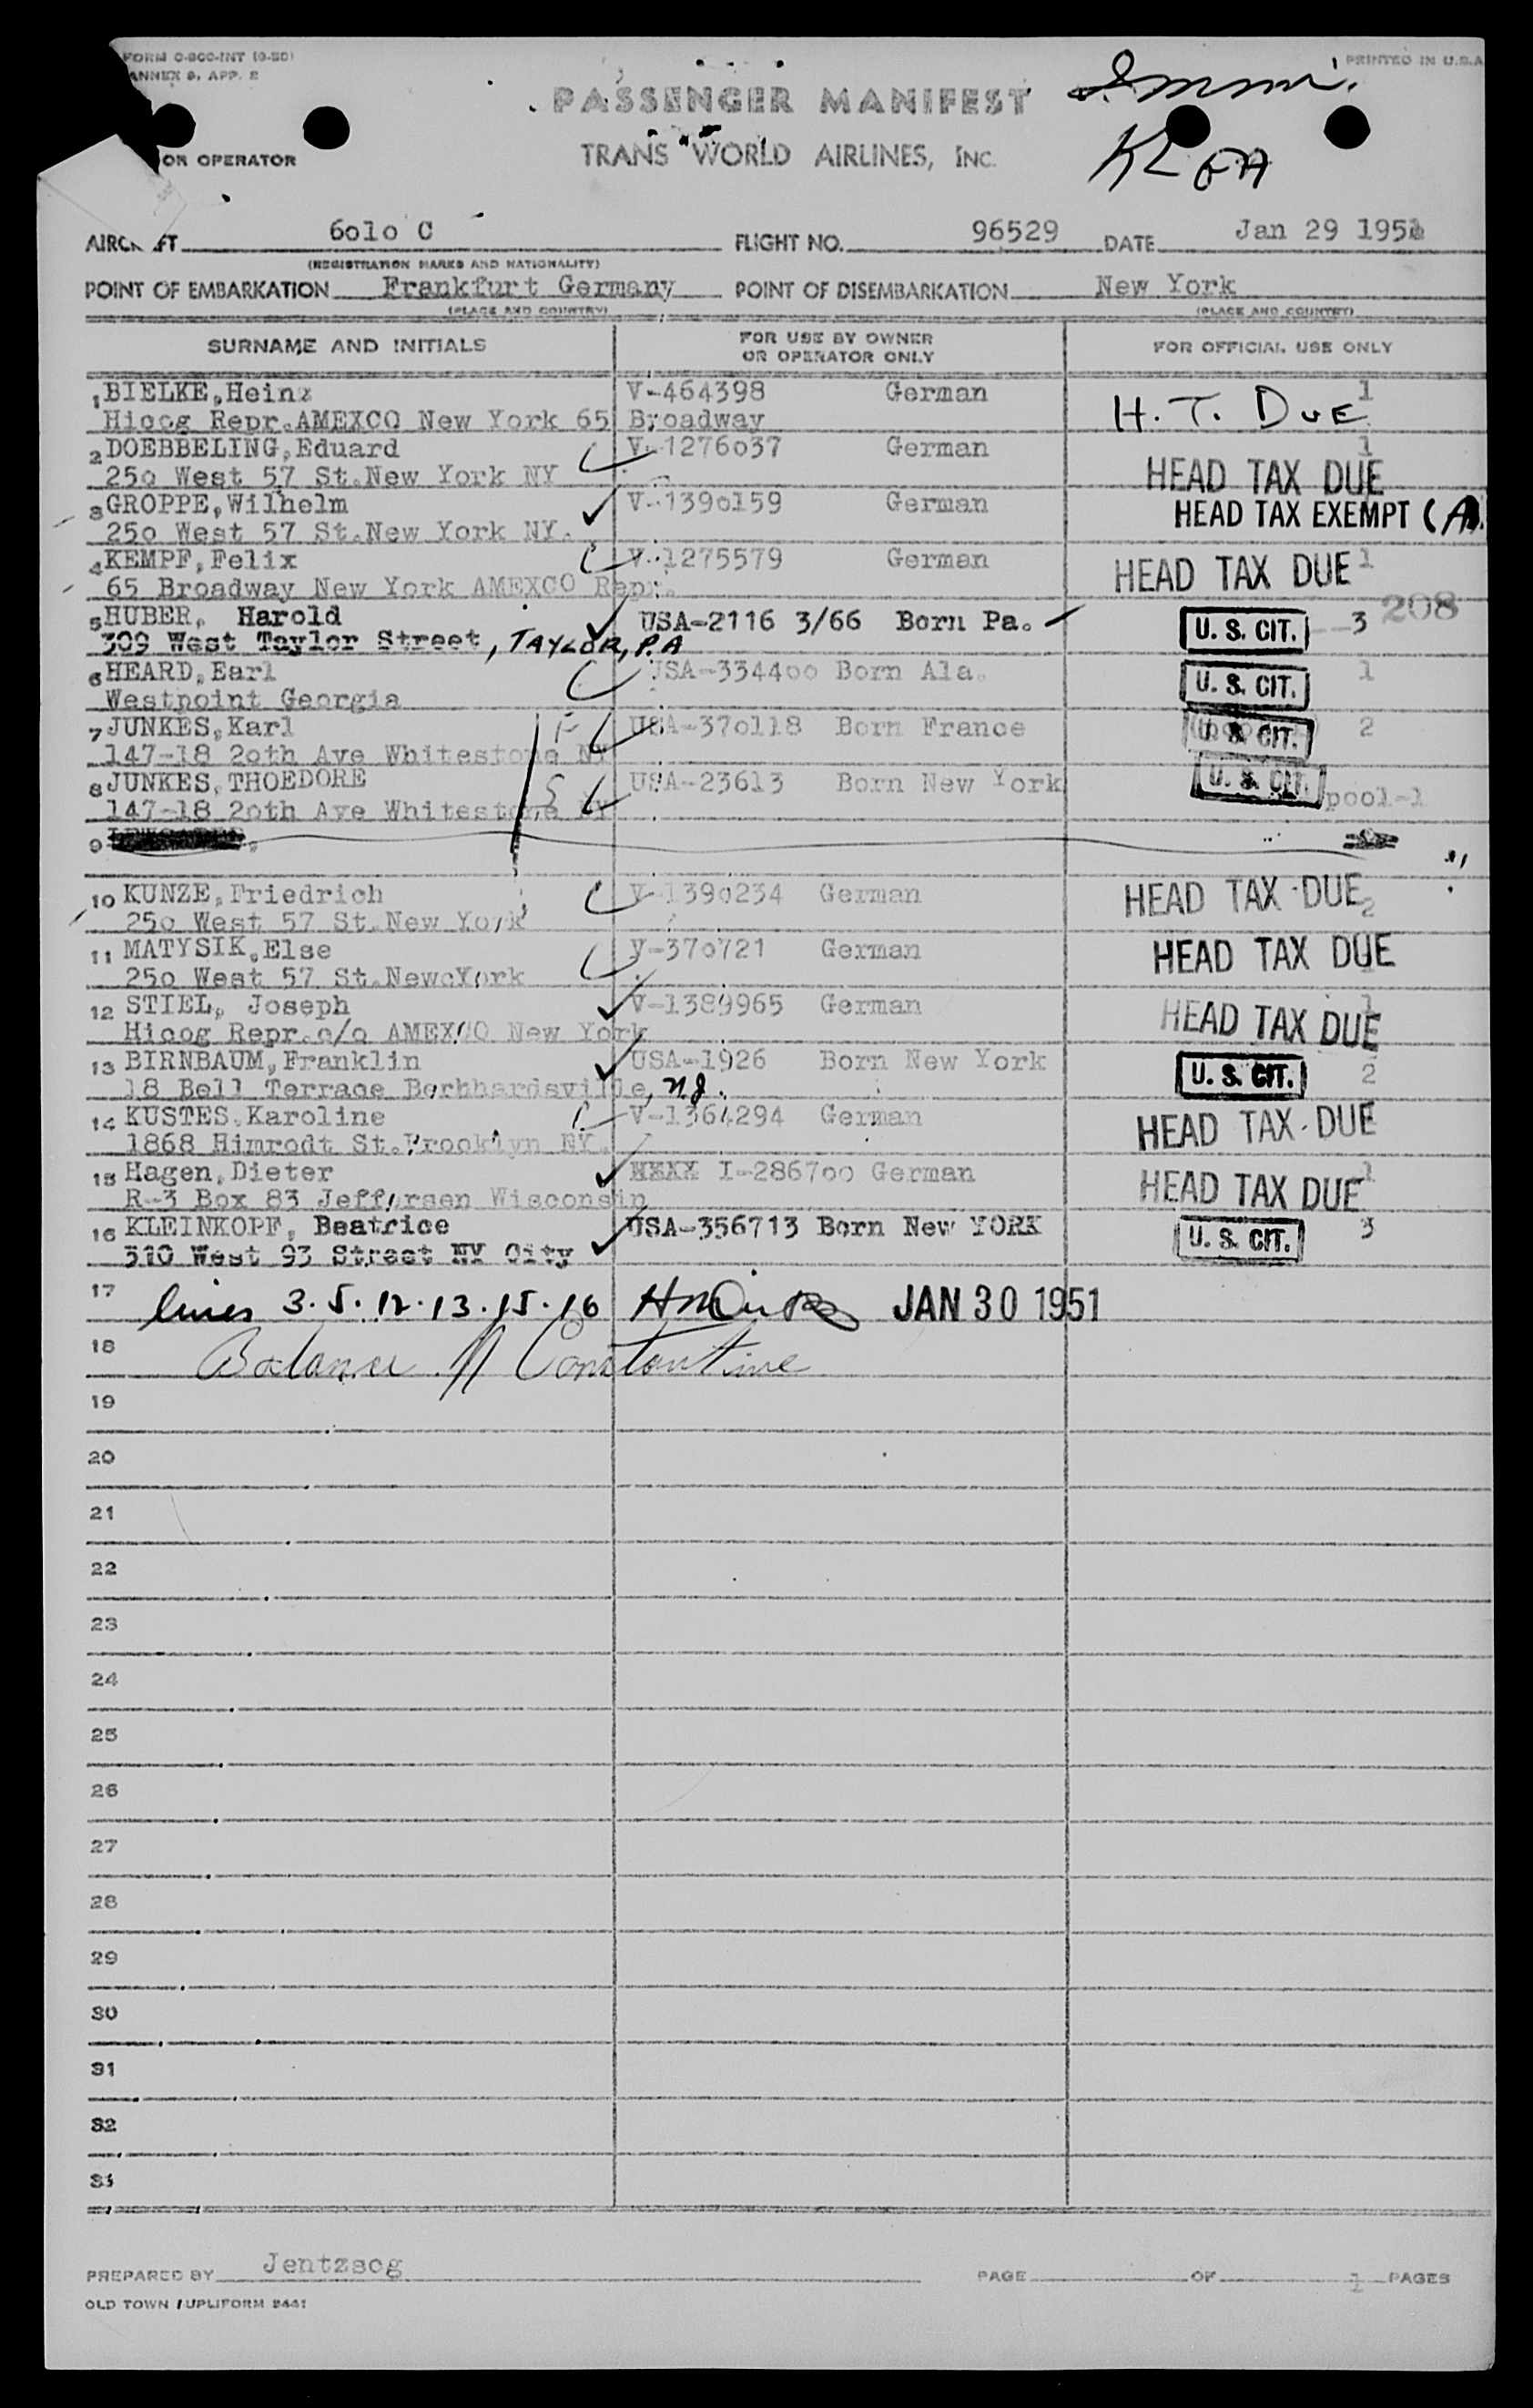 FORM O-800-INT (9-50)
ANNEX 9, APP. 2
PRINTED IN U.S.A
PASSENGER MANIFEST
Immi.
OR OPERATOR
TRANS WORLD AIRLINES, INC.
AIRCRAFT 6olo C FLIGHT NO. 96529 DATE Jan 29 1951
(REGISTRATION MARKS AND NATIONALITY)
POINT OF EMBARKATION Frankfurt Germany POINT OF DISEMBARKATION New York
(PLACE AND COUNTRY) (PLACE AND COUNTRY)
SURNAME AND INITIALS FOR USE BY OWNER OR OPERATOR ONLY FOR OFFICIAL USE ONLY
1 BIELKE,Heinz V-464398 German 1
Hicog Repr.AMEXCO New York 65 Broadway H.T. DUE
2 DOEBBELING,Eduard V-1276o37 German 1
25o West 57 St.New York NY HEAD TAX DUE
3 GROPPE,Wilhelm V-139o159 German HEAD TAX EXEMPT (A)
25o West 57 St.New York NY.
4 KEMPF,Felix V-1275579 German HEAD TAX DUE 1
65 Broadway New York AMEXCO Repr.
5 HUBER, Harold USA-2116 3/66 Born Pa. U. S. CIT. 3 208
309 West Taylor Street, TAYLOR, PA
6 HEARD,Earl USA-3344oo Born Ala. U. S. CIT. 1
Westpoint Georgia
7 JUNKES,Karl F USA-37o118 Born France U. S. CIT. 2
147-18 2oth Ave Whitestone NY
8 JUNKES,THOEDORE S USA-23613 Born New York U. S. CIT. pool-1
147-18 2oth Ave Whitestone NY
9
10 KUNZE,Friedrich V-139o234 German HEAD TAX DUE 2
25o West 57 St.New York
11 MATYSIK,Else V-37o721 German HEAD TAX DUE
25o West 57 St.NewcYork
12 STIEL, Joseph V-1389965 German HEAD TAX DUE 1
Hicog Repr.c/o AMEXCO New York
13 BIRNBAUM,Franklin USA-1926 Born New York U. S. CIT. 2
18 Bell Terrace Berhhardsville, N.J.
14 KUSTES,Karoline V-1364294 German HEAD TAX DUE
1868 Himrodt St.Brooklyn NY.
15 Hagen,Dieter I-2867oo German HEAD TAX DUE 1
R-3 Box 83 Jeffersen Wisconsin
16 KLEINKOPF, Beatrice USA-356713 Born New YORK U. S. CIT. 3
310 West 93 Street NY City
17 lines 3.5.12.13.15.16 JAN 30 1951
18 Balance Constantine
19
20
21
22
23
24
25
26
27
28
29
30
31
32
33
PREPARED BY Jentzscg PAGE OF 1 PAGES
OLD TOWN DUPLIFORM 9441